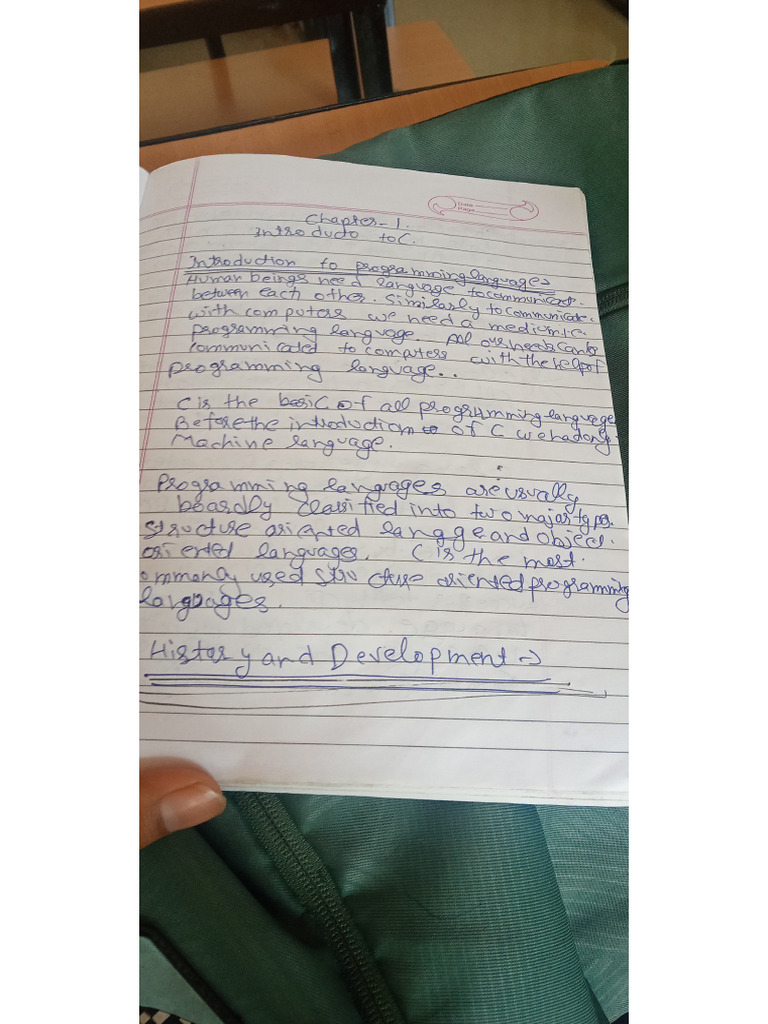 Date
Page
Chapter-1.
Introducto to C.
Introduction to programming languages
Human beings need language to communicate.
between each other. Similarly to communicate.
with computers we need a medium i.e.
programming language. All our needs can be
communicated to computers with the help of
programming language..
C is the basic of all programming language
Before the introduction of C we had only.
Machine language.
Programming languages are usually
boardly classified into two major types.
structure oriented langge and object.
oriented languages. C is the most.
ommonly used structure oriented programming
languages.
History and Development →